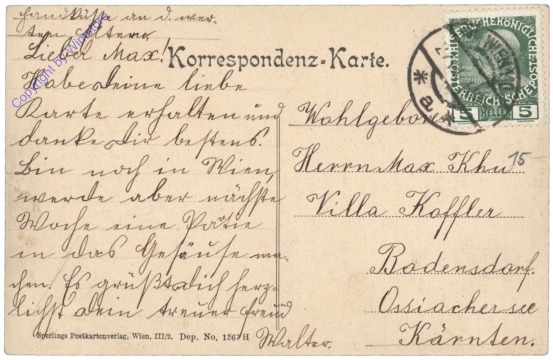 Handküsse an d. wer-
ten Eltern
Lieber Max!
Habe deine liebe
Karte erhalten und
danke Dir bestens.
Bin noch in Wien,
werde aber nächste
Woche eine Partie
in das Gesäuse ma-
chen. Es grüßt dich herz-
lichst dein treuer Freund
Walter.
Copyright by Winterlo
Korrespondenz-Karte.
Wohlgeboren
Herrn Max Khu
15-
Villa Koffler
Bodensdorf.
Ossiachersee
Kärnten.
WIEN
5 HELLER 5
Sperlings Postkartenverlag, Wien, III/2. Dep. No. 1267 H